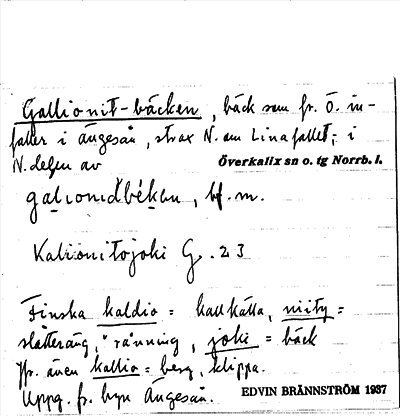 Gallionit-bäcken, bäck som fr. Ö. in-
faller i Ängesån, strax N. om Linafallet, i
N. delen av Överkalix sn o. tg Norrb. l.
bf. m.
Kalionitojoki G. 23
Finska kaldio = kallkälla, niitty =
slåtteräng, "rånning, joki = bäck
Jfr. även kallio = berg, klippa.
Uppg. fr. byn Ängesån. EDVIN BRÄNNSTRÖM 1937